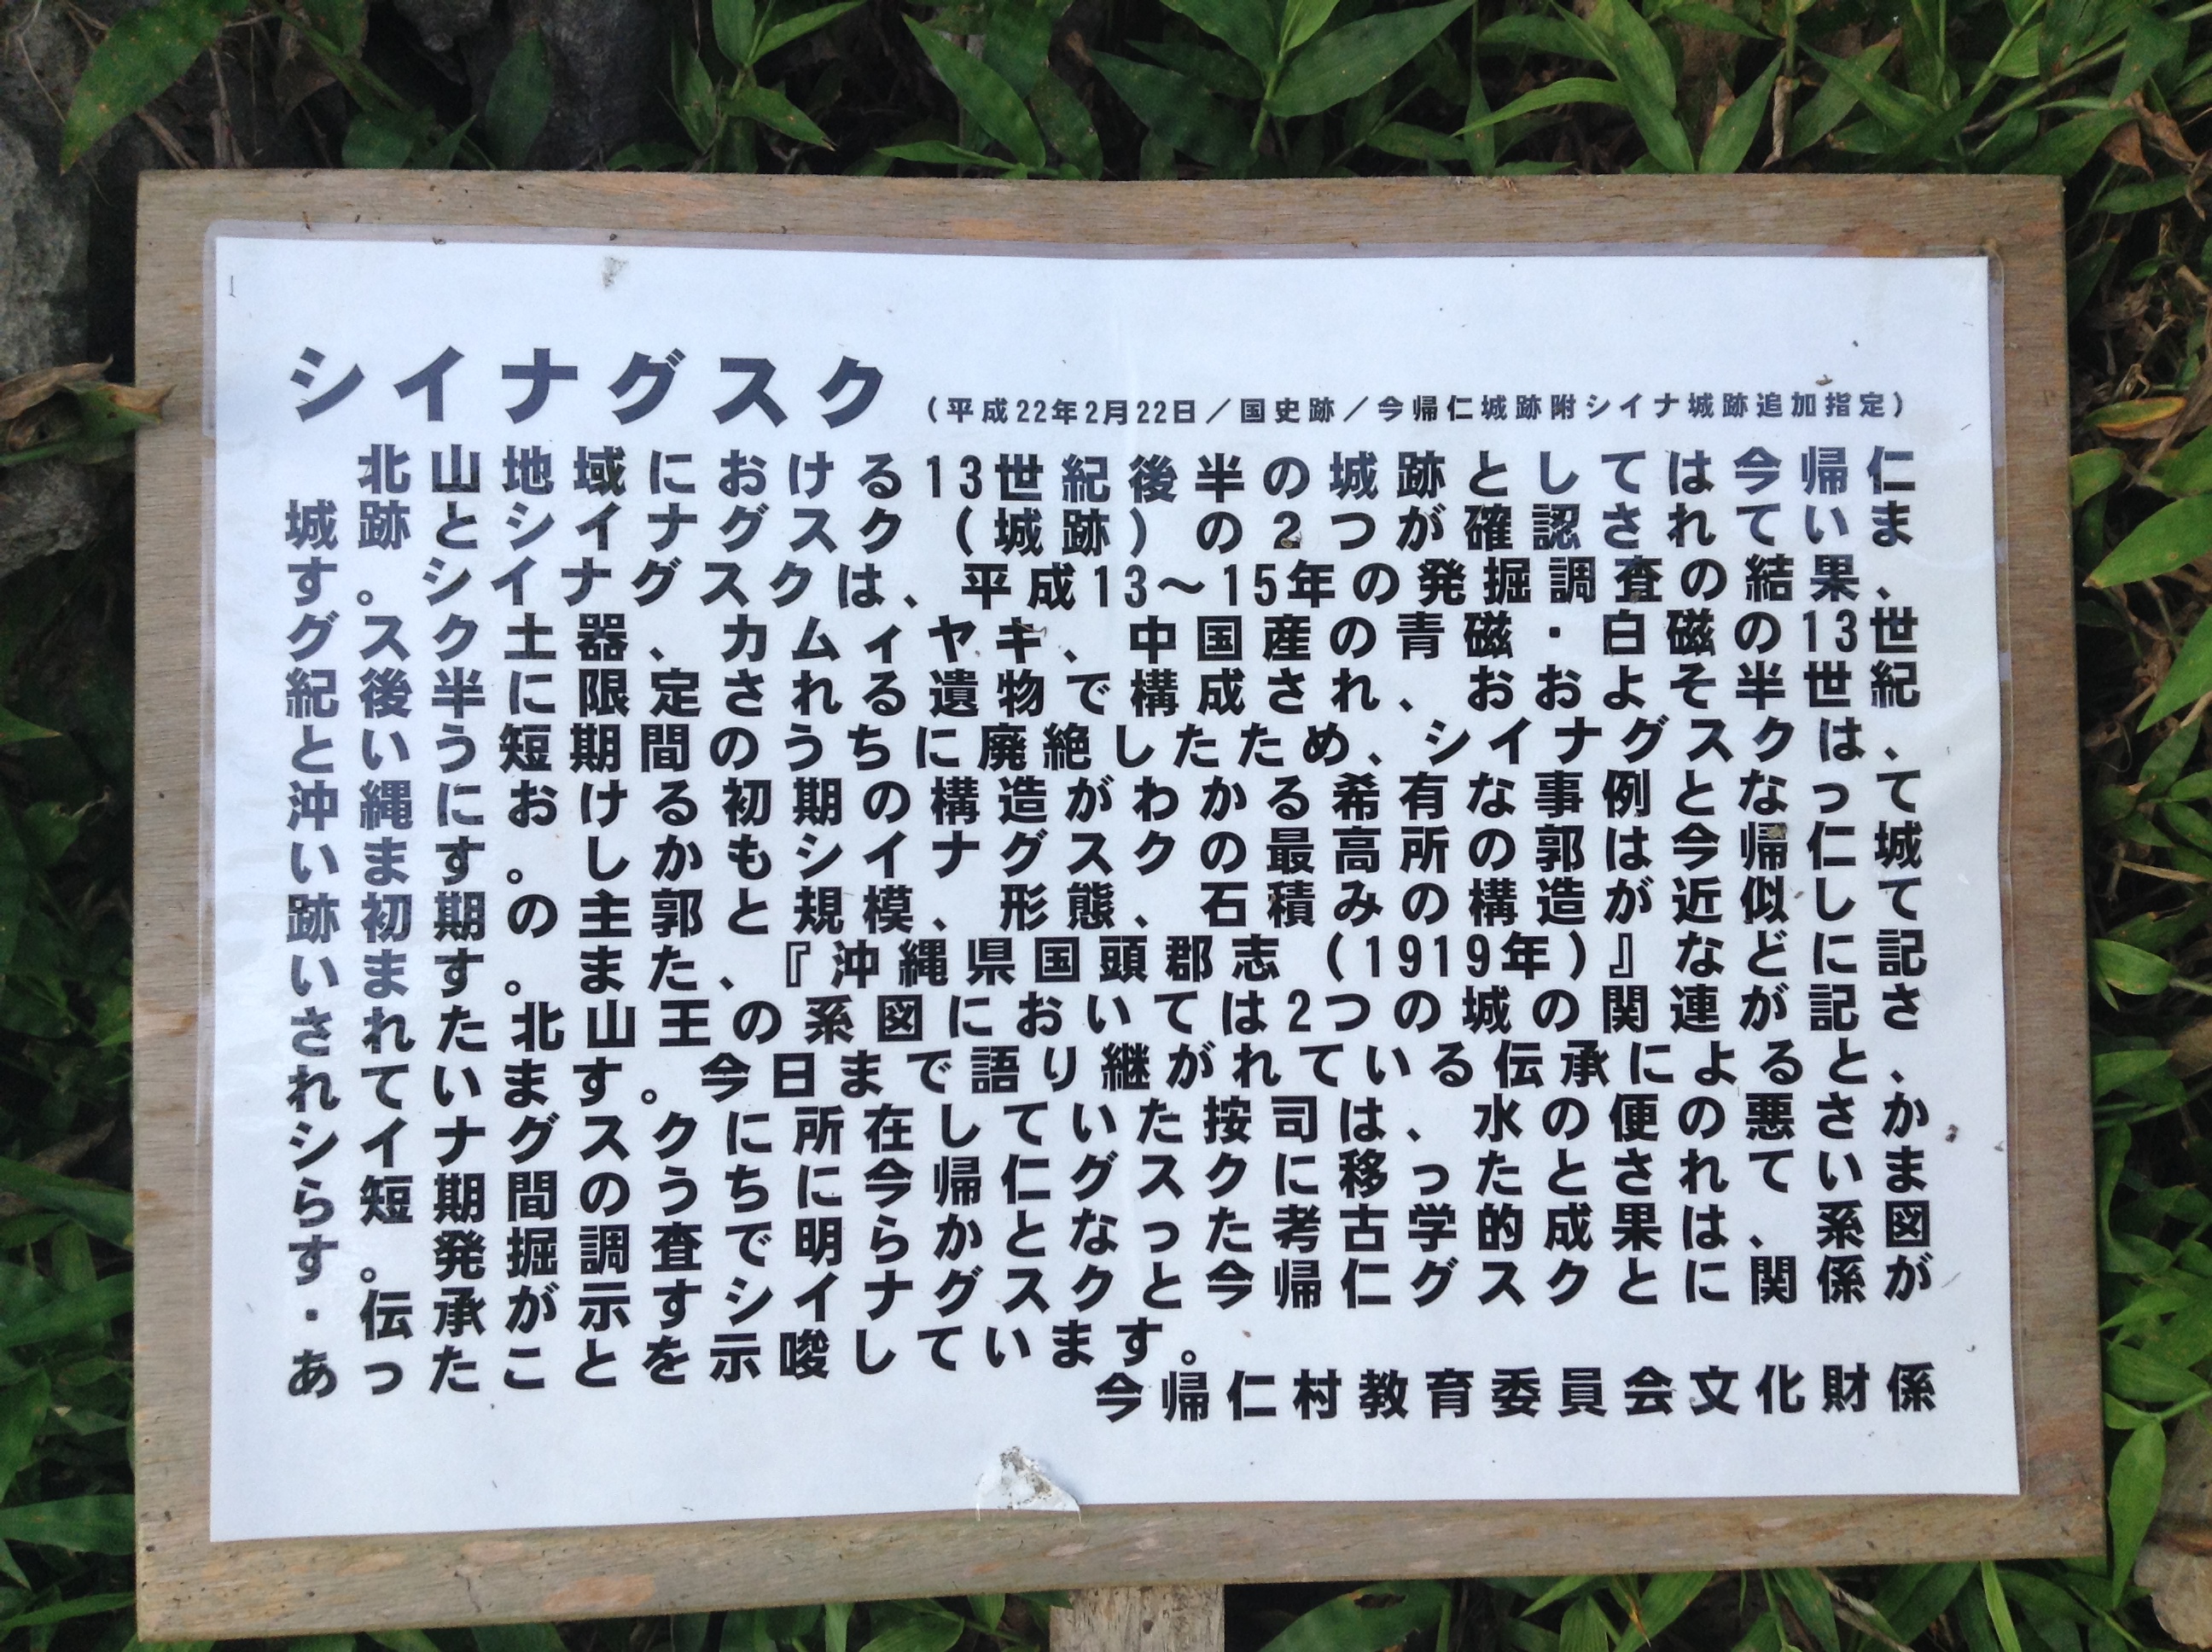 シイナグスク（平成22年2月22日／国史跡／今帰仁城跡附シイナ城跡追加指定）
北山地域における13世紀後半の城跡としては今帰仁
城跡とシイナグスク（城跡）の2つが確認されていま
す。シイナグスクは、平成13～15年の発掘調査の結果、
グスク土器、カムィヤキ、中国産の青磁・白磁の13世
紀後半に限定される遺物で構成され、おおよそ半世紀
という短期間のうちに廃絶したため、シイナグスクは、
沖縄における初期の構造がわかる希有な事例となって
います。しかもシイナグスクの最高所の郭は今帰仁城
跡初期の主郭と規模、形態、石積みの構造が近似して
います。また、『沖縄県国頭郡志（1919年）』などに記
された北山王の系図においては2つの城の関連が記さ
れています。今日まで語り継がれている伝承によると、
シイナグスクに所在していた按司は、水の便の悪さか
ら短期間のうちに今帰仁グスクに移ったとされていま
す。発掘調査で明らかとなった考古学的成果は、系図
・伝承が示すシイナグスクと今帰仁グスクとに関係が
あったことを示唆しています。
今帰仁村教育委員会文化財係